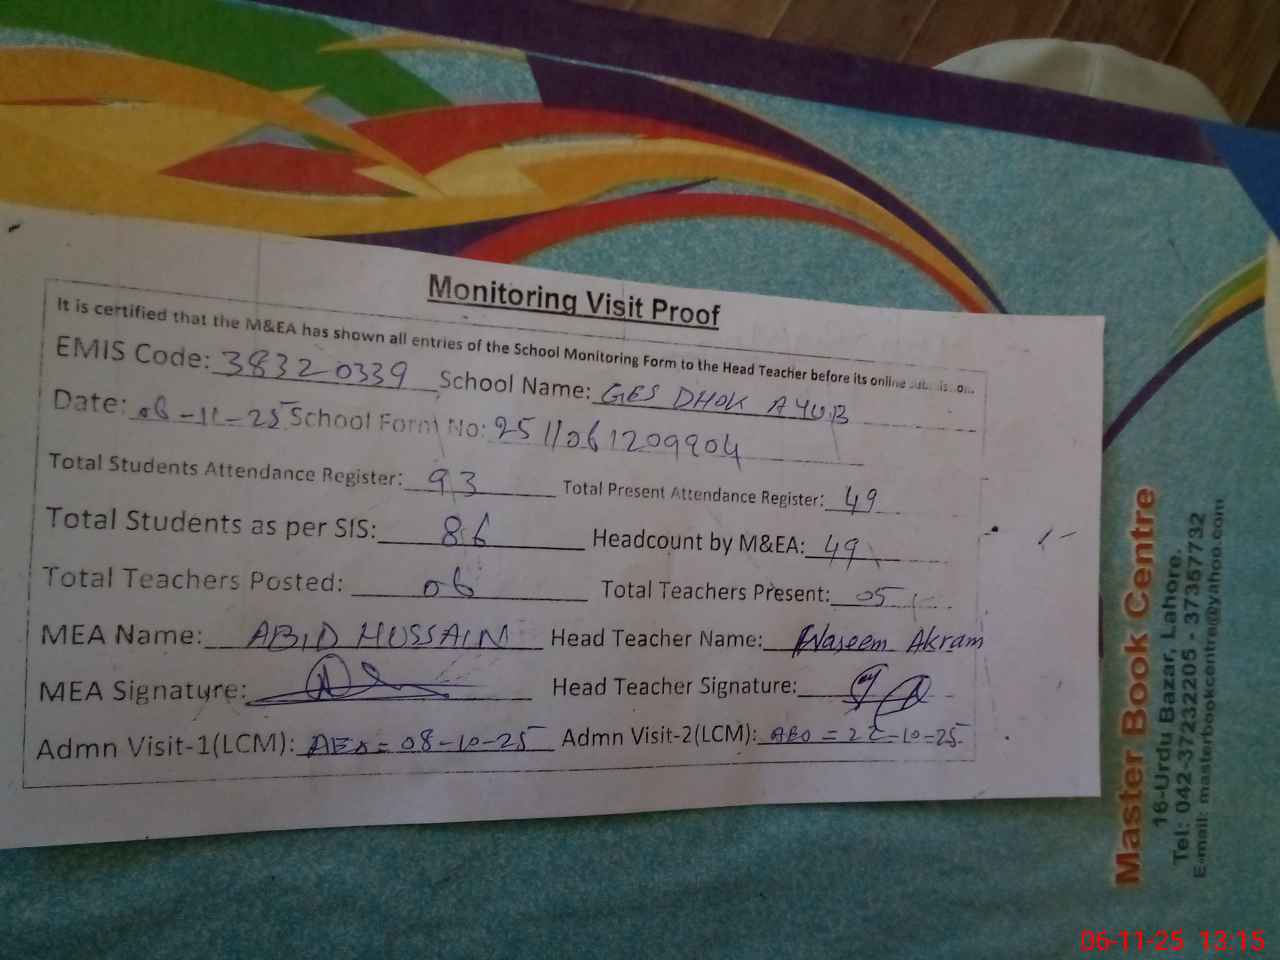 Monitoring Visit Proof
It is certified that the M&EA has shown all entries of the School Monitoring Form to the Head Teacher before its online
EMIS Code: 38320339 School Name: GES DHOK AYUB
Date: 06-11-25 School Form No: 2511061209904
Total Students Attendance Register: 93 Total Present Attendance Register: 49
Total Students as per SIS: 86 Headcount by M&EA: 49
Total Teachers Posted: 06 Total Teachers Present: 05
MEA Name: ABID HUSSAIN Head Teacher Name: Waseem Akram
MEA Signature: Head Teacher Signature:
Admn Visit-1(LCM): AEO = 08-10-25 Admn Visit-2(LCM): AEO =
Master Book Centre
16-Urdu Bazar, Lahore.
Tel: 042-37232205 - 37357732
E-mail: masterbookcentre@yahoo.com
06-11-25 13:15